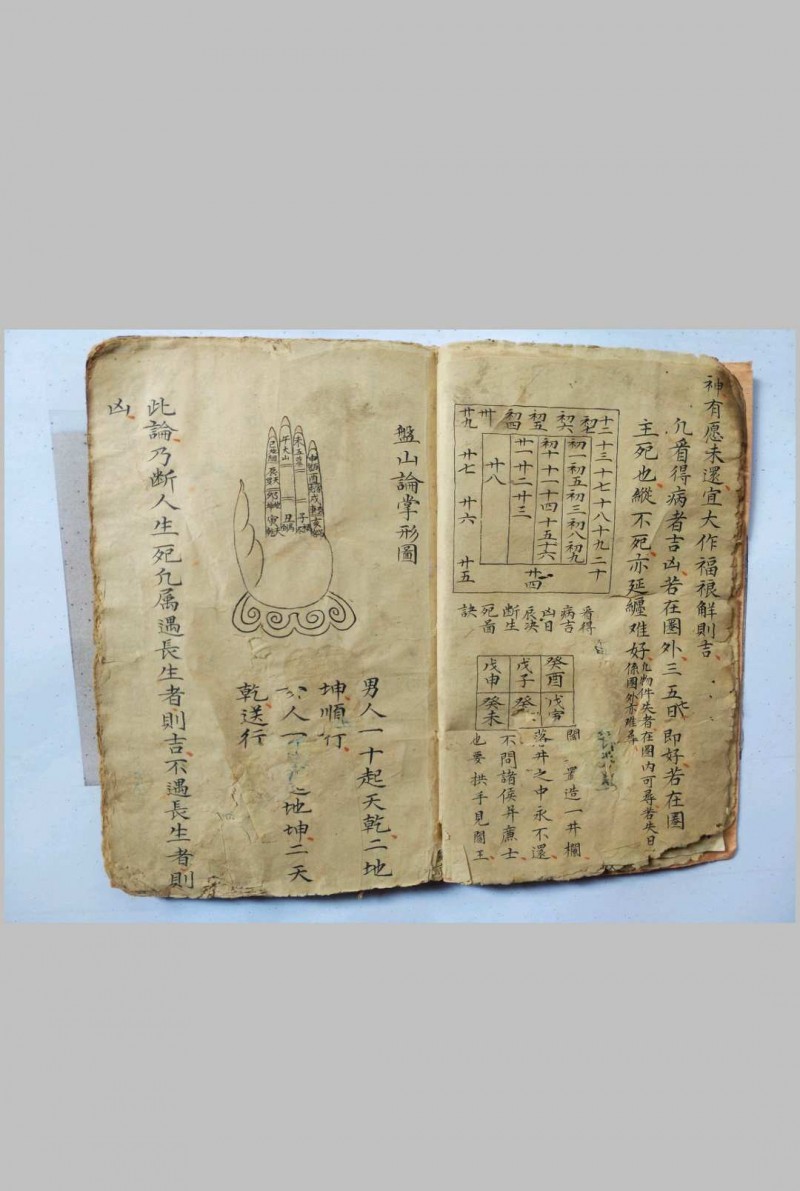 神有愿未還宜大作福禳解則吉
凢看得病者吉凶若在圈外三五日即好若在圈
主死也縱不死亦延纏难好
凢物件失者在圈内可尋若失日
係圈外亦难尋
十二十三十七十八十九二十
初七
初六
初五
初四
卅
廿九
廿七
廿六
廿五
廿四
初一初五初三初八初九
初十十一十四十五十六
廿一廿二廿三
廿八
看得
病吉
凶日
辰决
断生
死啚
訣
癸酉
戊寅
戊子
癸
戊申
癸未
閻
置造一井欄
落井之中永不還
不問諸侯并廉士
也要拱手見閻王
盤山論掌形圖
男人一十起天乾二地
坤順行
人一
之地坤二天
乾送行
此論乃断人生死凢属遇長生者則吉不遇長生者則
凶